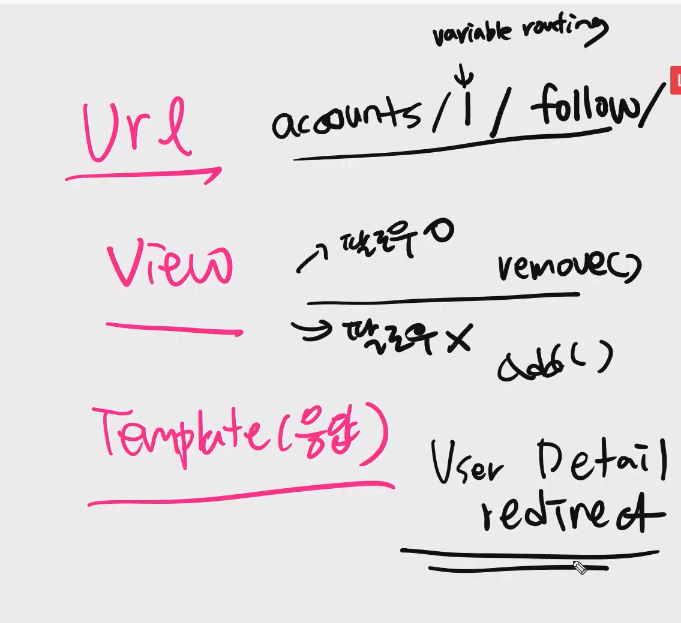 variable routing
Url accounts/1/follow/
View
팔로우 O remove()
팔로우 X add()
Template(응답)
User Detail
redirect